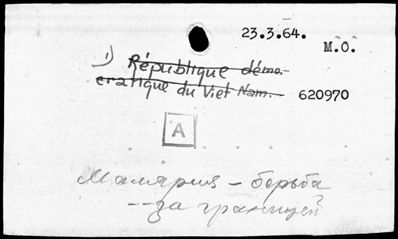 23.3.64.
М.О.
1) République démo-
cratique du Viet Nam. 620970
А
Малярия - борьба
-- за границей